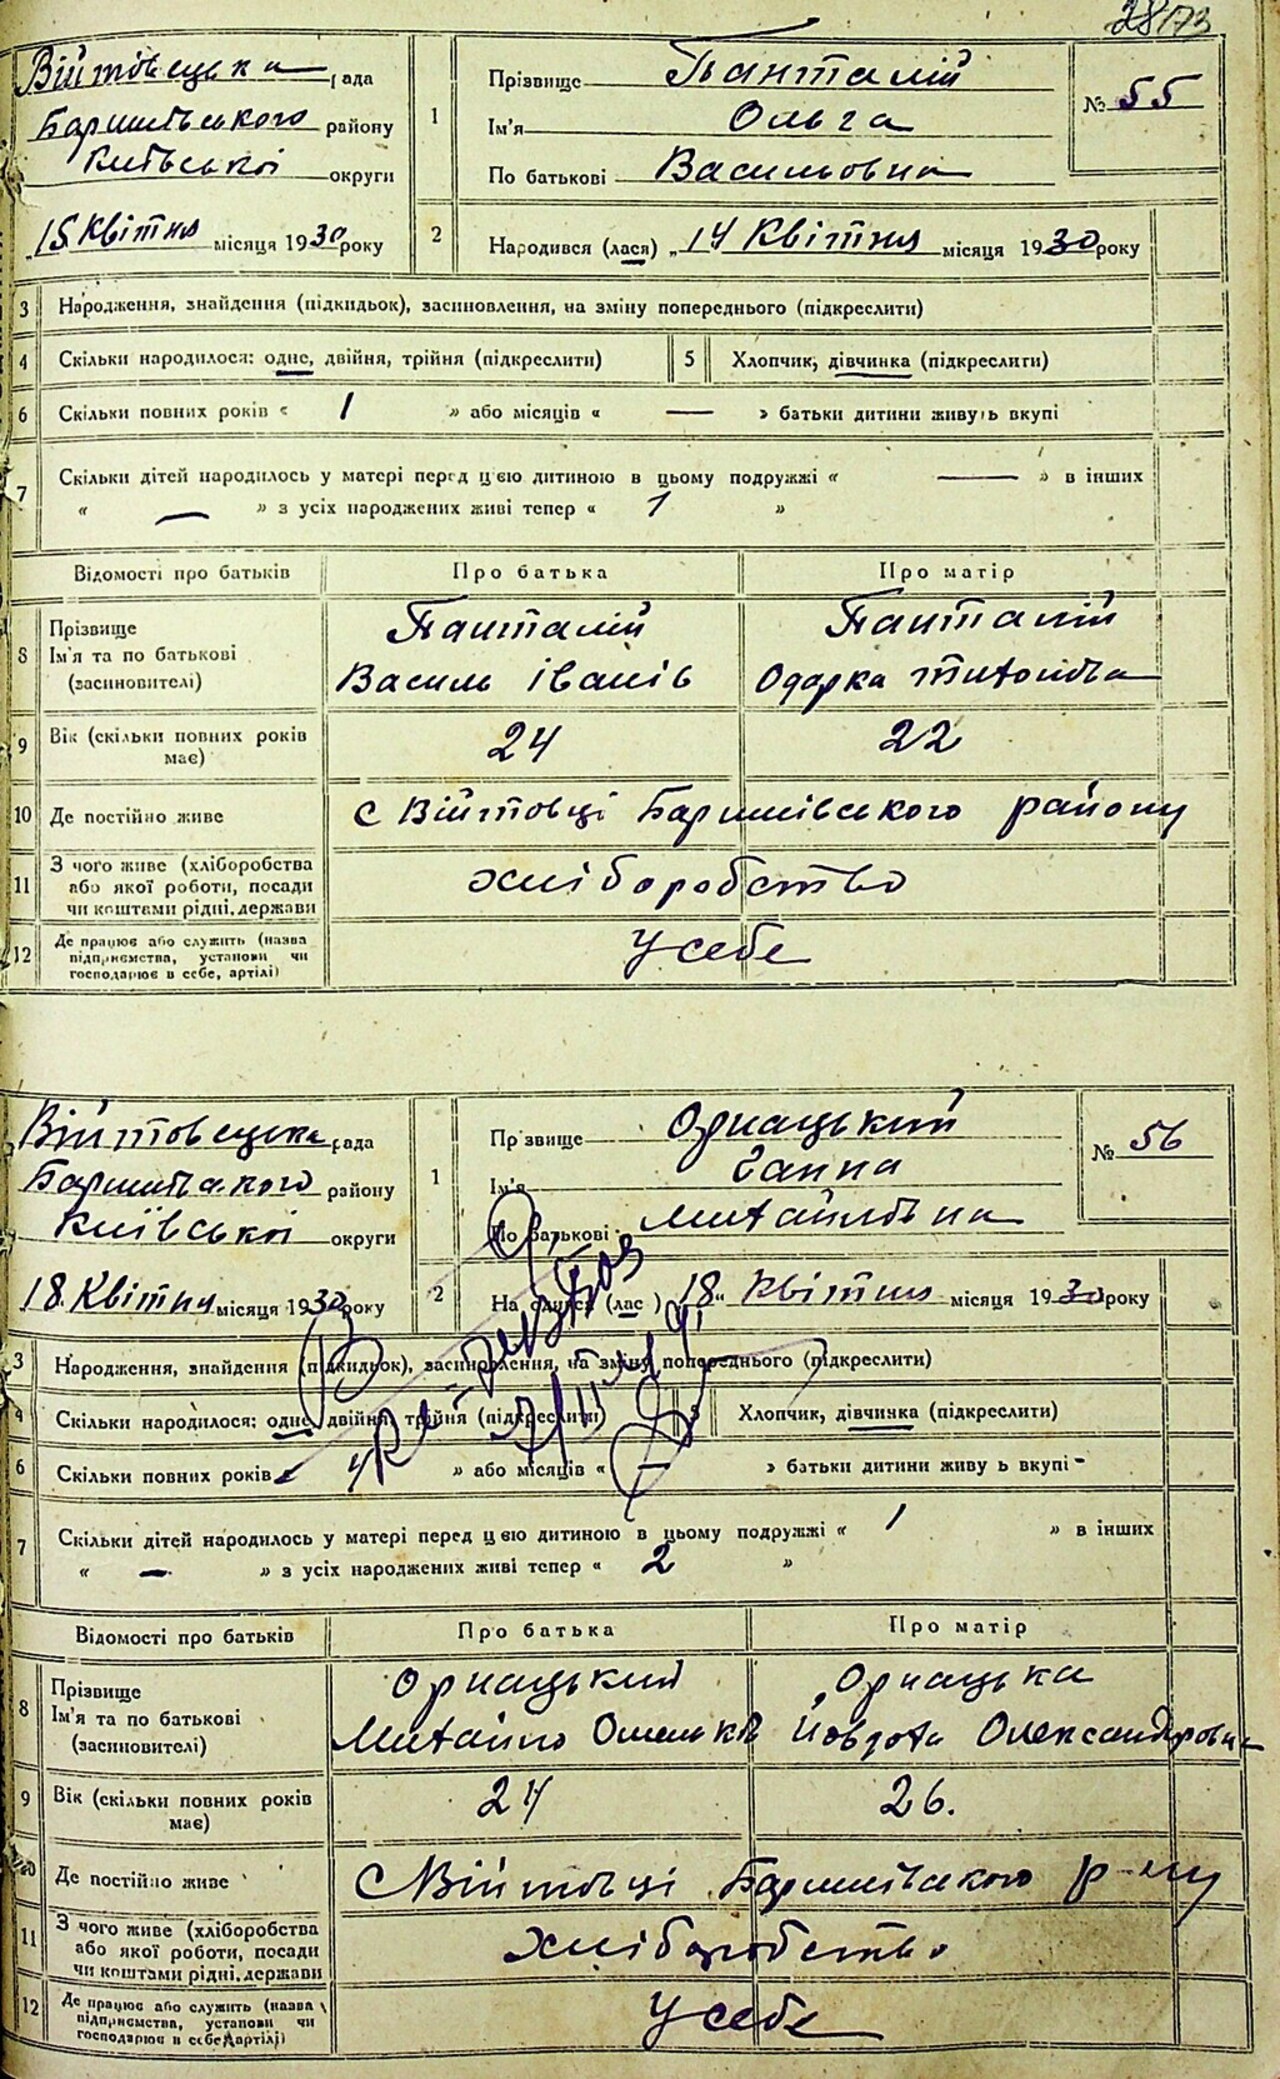 173
Війтовецька рада
Баришівського району
Київської округи
15 Квітня місяця 1930 року
1
Прізвище Панталій
Ім'я Ольга
По батькові Васильовна
№ 55
2 Народився (лася) „14 Квітня місяця 1930 року
3 Народження, знайдення (підкидьок), засиновлення, на зміну попереднього (підкреслити)
4 Скільки народилося: одне, двійня, трійня (підкреслити) 5 Хлопчик, дівчинка (підкреслити)
6 Скільки повних років « 1 » або місяців « — » батьки дитини живуть вкупі
7 Скільки дітей народилось у матері перед цією дитиною в цьому подружжі « — » в інших
« — » з усіх народжених живі тепер « 1 »
Відомості про батьків Про батька Про матір
8 Прізвище Панталій Панталій
Ім'я та по батькові Василь Іванів Одарка Титоновна
(засиновителі)
9 Вік (скільки повних років має) 24 22
10 Де постійно живе с Війтовці Баришівського району
11 З чого живе (хліборобства
або якої роботи, посади хліборобство
чи коштами рідні, держави
12 Де працює або служить (назва
підприємства, установи чи У себе
господарює в себе, артілі)
Війтовецька рада
Баришівського району
Київської округи
18 Квітня місяця 1930 року
1
Прізвище Орнацький
Ім'я Ганна
По батькові Михайловна
№ 56
2 Народився (лас ) 18 „ Квітня місяця 1930 року
3 Народження, знайдення (підкидьок), засиновлення, на зміну попереднього (підкреслити)
4 Скільки народилося: одне, двійня, трійня (підкреслити) 5 Хлопчик, дівчинка (підкреслити)
6 Скільки повних років « 4 » або місяців « — » батьки дитини живуь вкупі
7 Скільки дітей народилось у матері перед цією дитиною в цьому подружжі « 1 » в інших
« — » з усіх народжених живі тепер « 2 »
Відомості про батьків Про батька Про матір
8 Прізвище Орнацький Орнацька
Ім'я та по батькові Михайло Олександровна
(засиновителі)
9 Вік (скільки повних років має) 24 26.
10 Де постійно живе С Війтовці Баришівського р-ну
11 З чого живе (хліборобства
або якої роботи, посади хліборобство
чи коштами рідні, держави
12 Де працює або служить (назва
підприємства, установи чи У себе
господарює в себе, артілі)